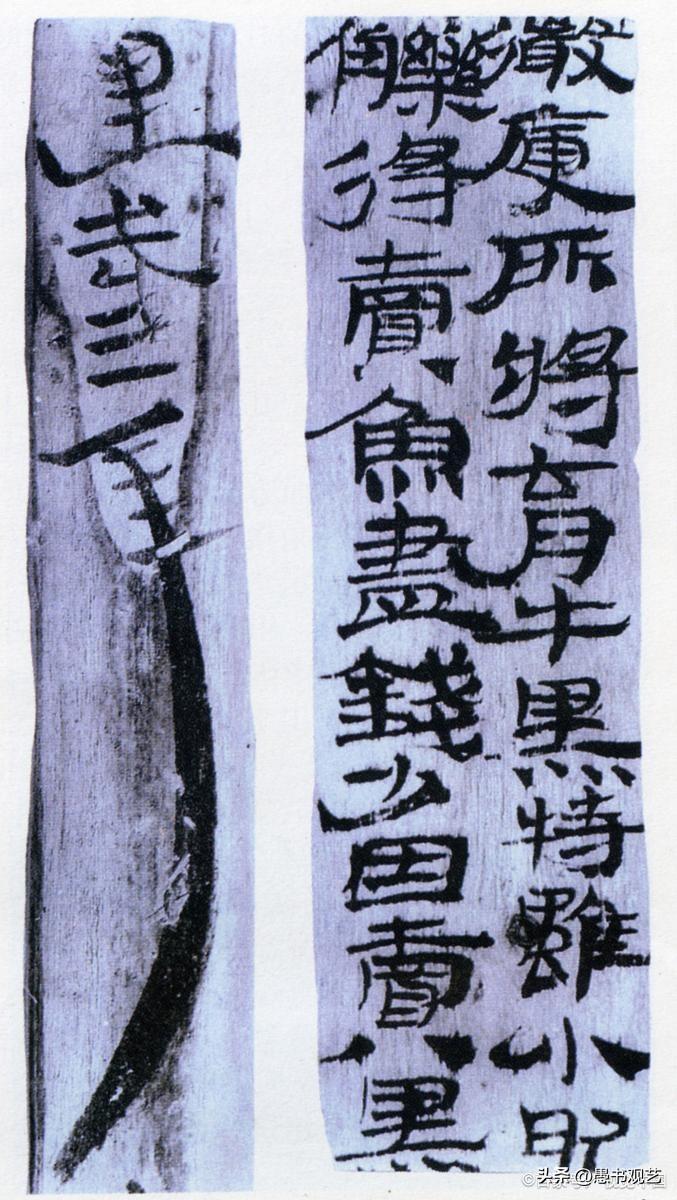 微庾所將育牛黑特雖小肥
觻得賣魚盡錢少因賣黑
里武三年
头条 @愚书观艺